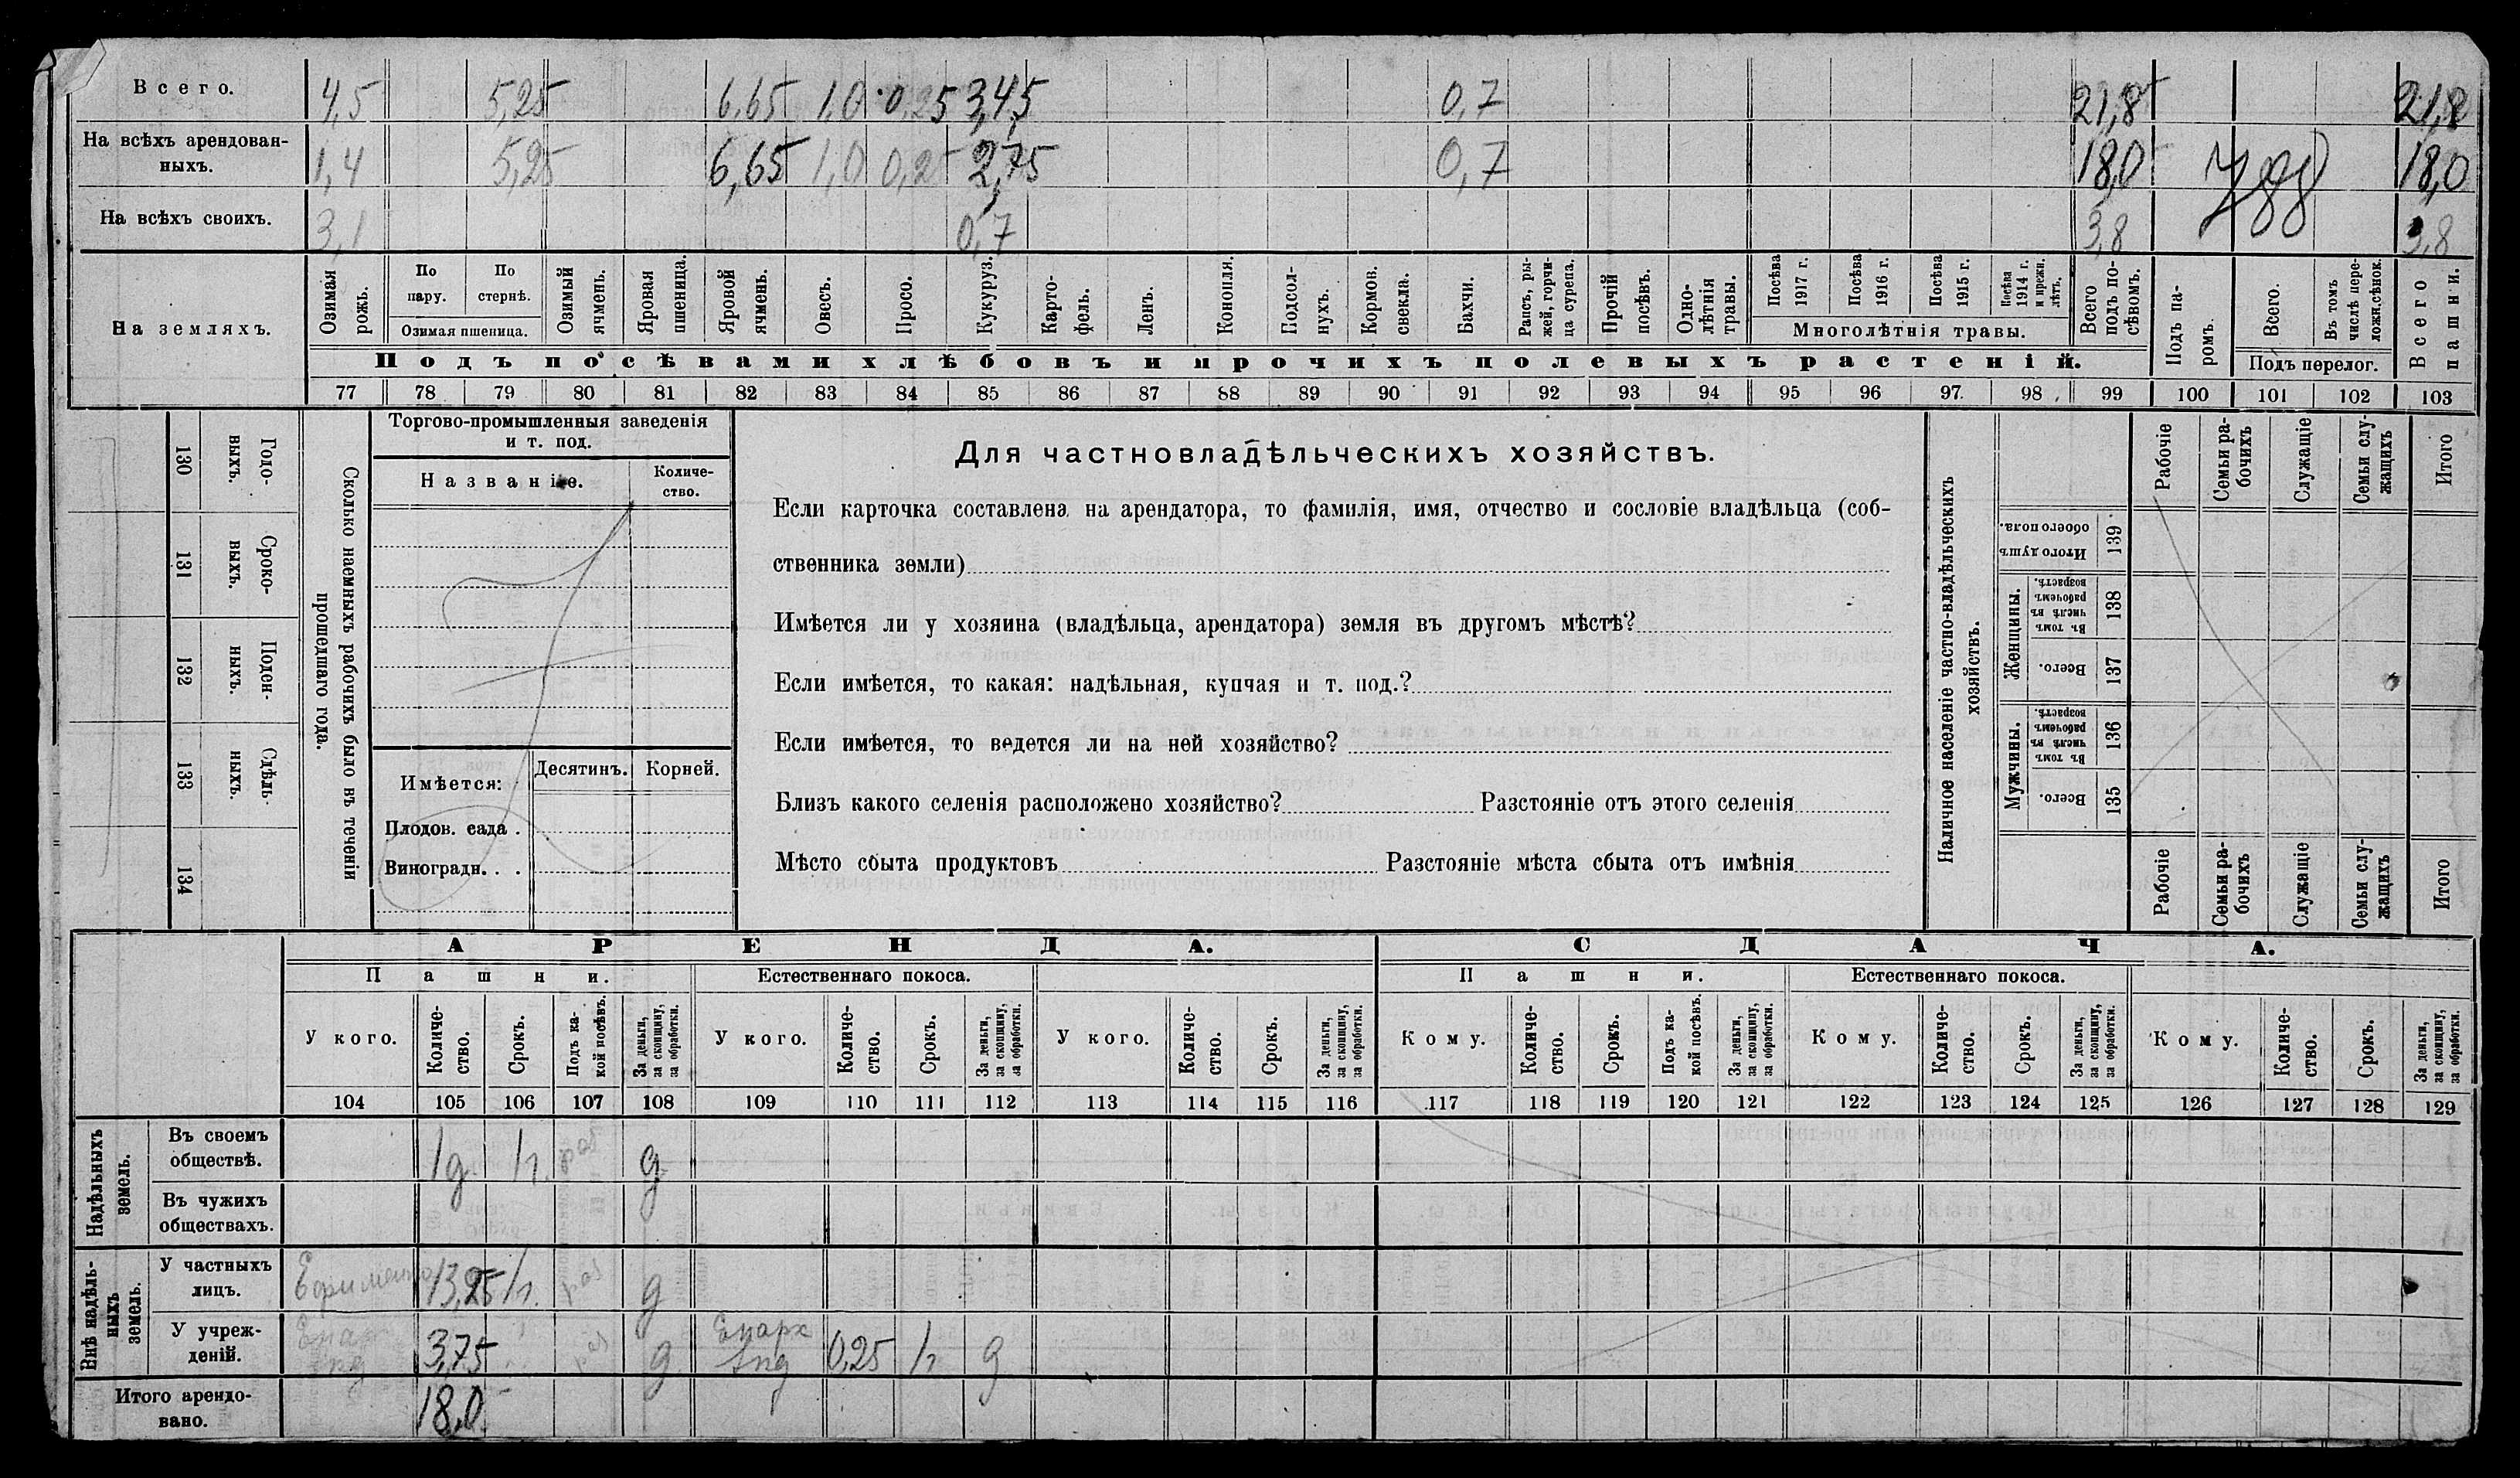 Всего. 4,5 5,25 6,65 1,0 0,25 3,45 0,7 21,8 21,8
На всѣхъ арендован-
ныхъ. 1,4 5,25 6,65 1,0 0,25 2,75 0,7 18,0 18,0
На всѣхъ своихъ. 3,1 0,7 3,8 3,8
На земляхъ.
Озимая рожь.
По пару.
По стернѣ.
Озимая пшеница.
Озимый ячмень.
Яровая пшеница.
Яровой ячмень.
Овесъ.
Просо.
Кукуруз.
Карто-
фель.
Ленъ.
Конопля.
Подсол-
нухъ.
Кормов. свекла.
Бахчи.
Рапсъ, ры-
жей, горчи-
ца сурепа.
Прочій посѣвъ.
Одно-
лѣтнія травы.
Посѣва 1917 г.
Посѣва 1916 г.
Посѣва 1915 г.
Посѣва 1914 г. и прежн. лѣтъ.
Многолѣтнія травы.
Всего подъ по-
сѣвомъ.
Подъ посѣвами хлѣбовъ и прочихъ полевыхъ растеній.
Подъ па-
ромъ.
Всего.
Въ томъ числѣ пере-
ложн.сѣнок.
Подъ перелог.
Всего пашни.
77 78 79 80 81 82 83 84 85 86 87 88 89 90 91 92 93 94 95 96 97 98 99 100 101 102 103
130 Годо-
выхъ.
131 Сроко-
выхъ.
132 Поден-
ныхъ.
133 Сдѣль-
ныхъ.
134
Сколько наемныхъ рабочихъ было въ теченіи
прошедшаго года.
Торгово-промышленныя заведенія
и т. под.
Названіе.
Количе-
ство.
Имѣется:
Десятинъ.
Корней.
Плодов. сада .
Виноградн. . .
Для частновладѣльческихъ хозяйствъ.
Если карточка составлена на арендатора, то фамилія, имя, отчество и сословіе владѣльца (соб-
ственника земли)
Имѣется ли у хозяина (владѣльца, арендатора) земля въ другомъ мѣстѣ?
Если имѣется, то какая: надѣльная, купчая и т. под.?
Если имѣется, то ведется ли на ней хозяйство?
Близъ какого селенія расположено хозяйство? Разстояніе отъ этого селенія
Мѣсто сбыта продуктовъ Разстояніе мѣста сбыта отъ имѣнія
Наличное населеніе частно-владѣльческихъ
хозяйствъ.
Рабочіе
Семьи ра-
бочихъ
Служащіе
Семьи слу-
жащихъ
Итого
Итого душъ обоего пола. 139
Женщины.
Въ томъ числѣ въ рабочемъ возрастѣ. 138
Всего. 137
Мужчины.
Въ томъ числѣ въ рабочемъ возрастѣ. 136
Всего. 135
Рабочіе
Семьи ра-
бочихъ
Служащіе
Семьи слу-
жащихъ
Итого
АРЕНДА. СДАЧА.
Пашни. Естественнаго покоса. Пашни. Естественнаго покоса.
У кого.
Количе-
ство.
Срокъ.
Подъ ка-
кой посѣвъ.
За деньги, за скопщину, за обработки.
У кого.
Количе-
ство.
Срокъ.
За деньги, за скопщину, за обработки.
У кого.
Количе-
ство.
Срокъ.
За деньги, за скопщину, за обработки.
Кому.
Количе-
ство.
Срокъ.
Подъ ка-
кой посѣвъ.
За деньги, за скопщину, за обработки.
Кому.
Количе-
ство.
Срокъ.
За деньги, за скопщину, за обработки.
Кому.
Количе-
ство.
Срокъ.
За деньги, за скопщину, за обработки.
104 105 106 107 108 109 110 111 112 113 114 115 116 117 118 119 120 121 122 123 124 125 126 127 128 129
Надѣльныхъ земель.
Въ своемъ
обществѣ. 1д 1г. раз д
Въ чужихъ
обществахъ.
Внѣ надѣль-
ныхъ земель.
У частныхъ
лицъ. Ефименко 13,25 1г. раз д
У учреж-
деній. 3,75 раз д Епарх 0,25 1г д
Итого арендо-
вано. 18,0